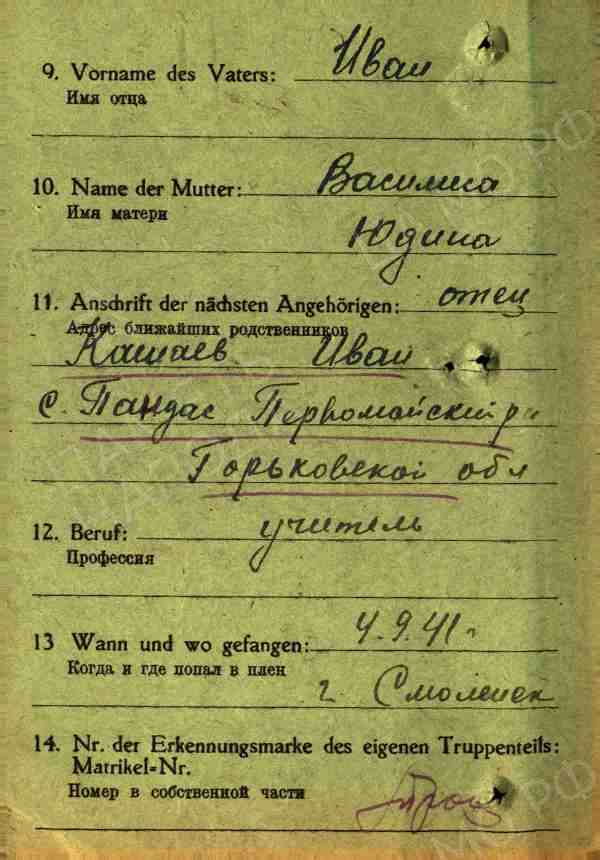 9. Vorname des Vaters: Иван
Имя отца
10. Name der Mutter: Василиса
Имя матери
Юдина
11. Anschrift der nächsten Angehörigen: отец
Адрес ближайших родственников
Кашаев Иван
с. Пандас Первомайский р
Горьковской обл
12. Beruf: учитель
Профессия
13 Wann und wo gefangen: 4.9.41 г
Когда и где попал в плен
г. Смоленск
14. Nr. der Erkennungsmarke des eigenen Truppenteils:
Matrikel-Nr.
Номер в собственной части